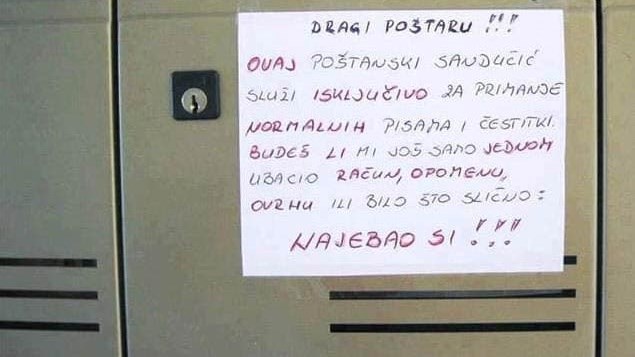 DRAGI POŠTARU !!!
OVAJ POŠTANSKI SANDUČIĆ
SLUŽI ISKLJUČIVO ZA PRIMANJE
NORMALNIH PISAMA I ČESTITKI.
BUDEŠ LI MI JOŠ SAMO JEDNOM
UBACIO RAČUN, OPOMENU,
OVRHU ILI BILO ŠTO SLIČNO:
NAJEBAO SI !!!